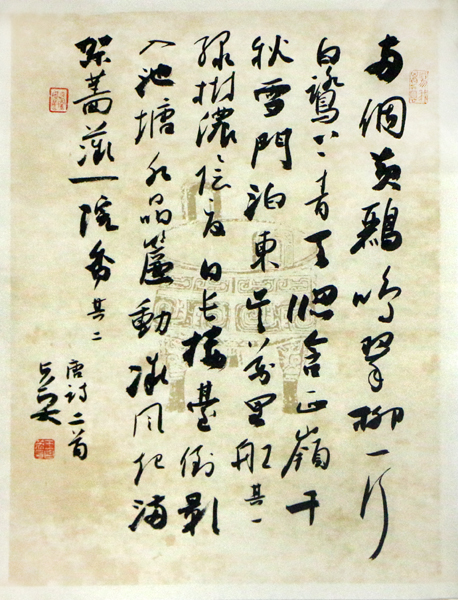 两個黄鸝鳴翠柳一行
白鷺上青天牕含西嶺千
秋雪門泊東吳萬里船其一
緑樹濃陰夏日長樓臺倒影
入池塘水晶簾動微風起滿
架薔薇一院香其二
唐詩二首